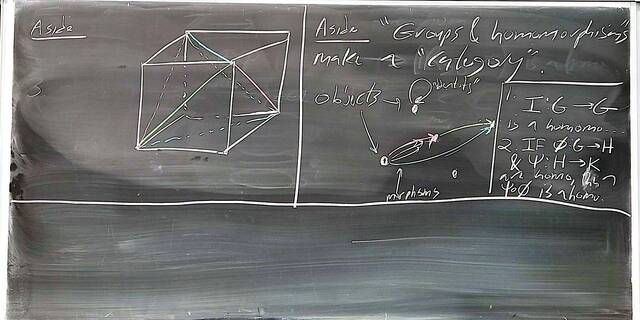 Aside
Aside "Groups & homomorphisms"
make a "category".
objects
"identity"
morphisms
1.
I:G→G
is a homomo...
2. IF φ G→H
& Ψ:H→K
are homo,
Ψ∘φ is a homo.